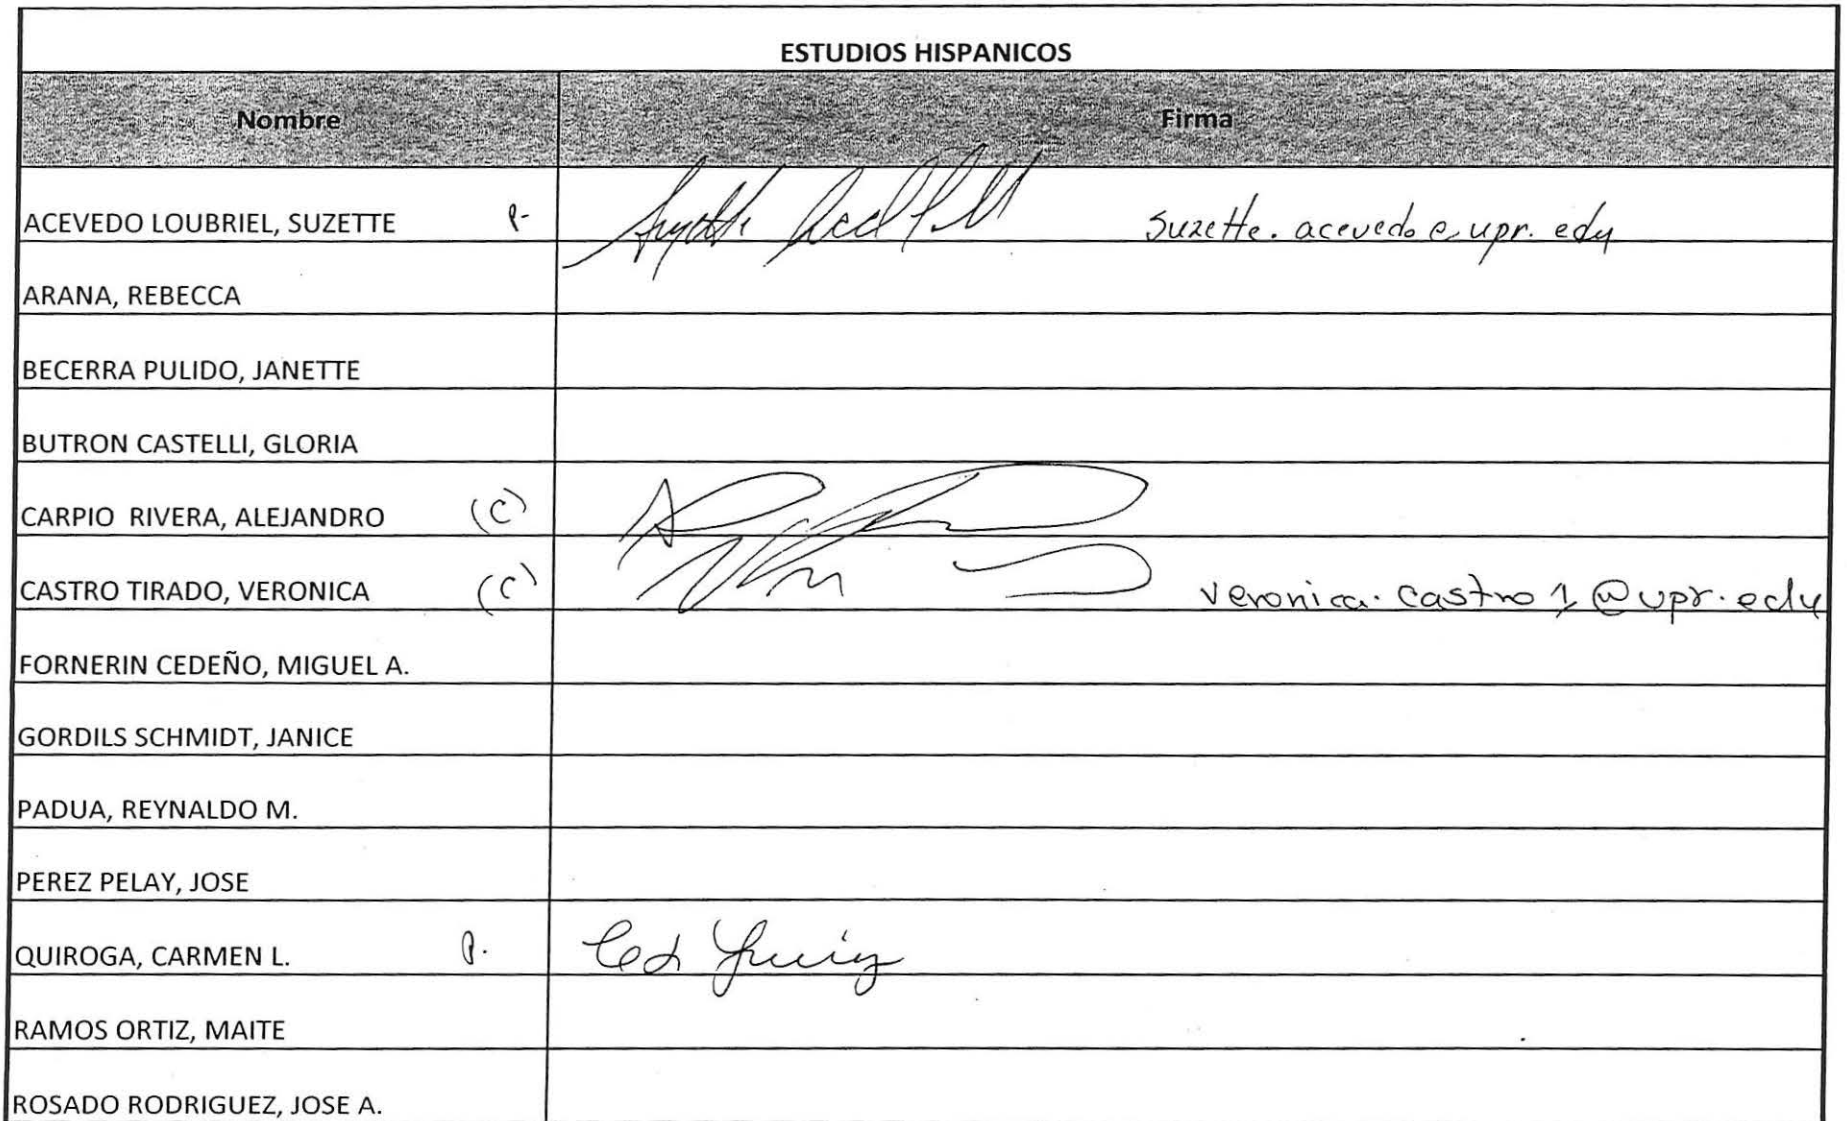 ESTUDIOS HISPANICOS
Nombre Firma
ACEVEDO LOUBRIEL, SUZETTE P- suzette.acevedo@upr.edu
ARANA, REBECCA
BECERRA PULIDO, JANETTE
BUTRON CASTELLI, GLORIA
CARPIO RIVERA, ALEJANDRO (C)
CASTRO TIRADO, VERONICA (C) veronica.castro1@upr.edu
FORNERIN CEDEÑO, MIGUEL A.
GORDILS SCHMIDT, JANICE
PADUA, REYNALDO M.
PEREZ PELAY, JOSE
QUIROGA, CARMEN L. P.
RAMOS ORTIZ, MAITE
ROSADO RODRIGUEZ, JOSE A.